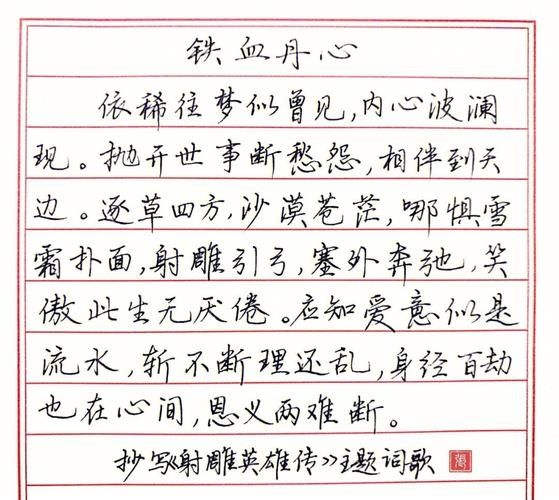 铁血丹心
依稀往梦似曾见,内心波澜
现。抛开世事断愁怨,相伴到天
边。逐草四方,沙漠苍茫,哪惧雪
霜扑面,射雕引弓,塞外奔弛,笑
傲此生无厌倦。应知爱意似是
流水,斩不断理还乱,身经百劫
也在心间,恩义两难断。
抄写《射雕英雄传》主题词歌